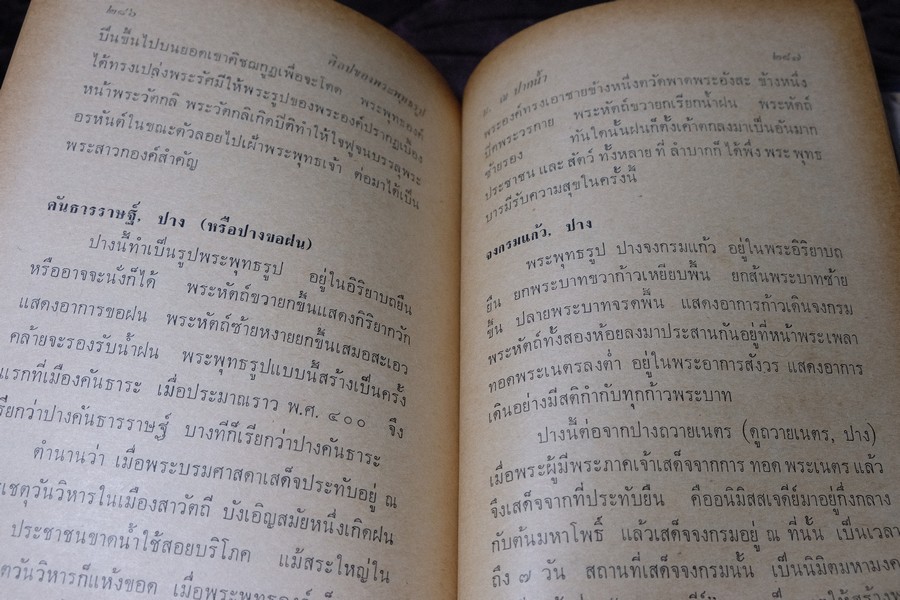 ๒๘๖
ศิลปของพระพุทธรูป
ปีนขึ้นไปบนยอดเขาคิชฌกูฏเพื่อจะโดด พระพุทธองค์
ได้ทรงเปล่งพระรัศมีให้พระรูปของพระองค์ปรากฏเบื้อง
หน้าพระวักกลิ พระวักกลิเกิดปีติทำให้ใจฟูจนบรรลุพระ
อรหันต์ในขณะตัวลอยไปเฝ้าพระพุทธเจ้า ต่อมาได้เป็น
พระสาวกองค์สำคัญ
คันธารราษฐ์, ปาง (หรือปางขอฝน)
ปางนี้ทำเป็นรูปพระพุทธรูป อยู่ในอิริยาบถยืน
หรืออาจจะนั่งก็ได้ พระหัตถ์ขวายกขึ้นแสดงกิริยากวัก
แสดงอาการขอฝน พระหัตถ์ซ้ายหงายยกขึ้นเสมอสะเอว
คล้ายจะรองรับน้ำฝน พระพุทธรูปแบบนี้สร้างเป็นครั้ง
แรกที่เมืองคันธาระ เมื่อประมาณราว พ.ศ. ๔๐๐ จึง
เรียกว่าปางคันธารราษฐ์ บางทีก็เรียกว่าปางคันธาระ
ตำนานว่า เมื่อพระบรมศาสดาเสด็จประทับอยู่ ณ
เชตุวันวิหารในเมืองสาวัตถี บังเอิญสมัยหนึ่งเกิดฝน
ประชาชนขาดน้ำใช้สอยบริโภค แม้สระใหญ่ใน
ตวันวิหารก็แห้งขอด เมื่อพระพุทธองค์
๒๘๗
น. ณ ปากน้ำ
พระองค์ทรงเอาชายข้างหนึ่งตวัดพาดพระอังสะ ข้างหนึ่ง
ปิดพระวรกาย พระหัตถ์ขวายกเรียกน้ำฝน พระหัตถ์
ซ้ายรอง ทันใดนั้นฝนก็ตั้งเค้าตกลงมาเป็นอันมาก
ประชาชน และ สัตว์ ทั้งหลาย ที่ ลำบากก็ ได้พึ่ง พระ พุทธ
บารมีรับความสุขในครั้งนี้
จงกรมแก้ว, ปาง
พระพุทธรูป ปางจงกรมแก้ว อยู่ในพระอิริยาบถ
ยืน ยกพระบาทขวาก้าวเหยียบพื้น ยกส้นพระบาทซ้าย
ขึ้น ปลายพระบาทจรดพื้น แสดงอาการก้าวเดินจงกรม
พระหัตถ์ทั้งสองห้อยลงมาประสานกันอยู่ที่หน้าพระเพลา
ทอดพระเนตรลงต่ำ อยู่ในพระอาการสังวร แสดงอาการ
เดินอย่างมีสติกำกับทุกก้าวพระบาท
ปางนี้ต่อจากปางถวายเนตร (ดูถวายเนตร, ปาง)
เมื่อพระผู้มีพระภาคเจ้าเสด็จจากการ ทอด พระเนตร แล้ว
จึงเสด็จจากที่ประทับยืน คืออนิมิสสเจดีย์มาอยู่กึ่งกลาง
กับต้นมหาโพธิ์ แล้วเสด็จจงกรมอยู่ ณ ที่นั้น เป็นเวลา
ถึง ๗ วัน สถานที่เสด็จจงกรมนั้น เป็นนิมิตมหามงค